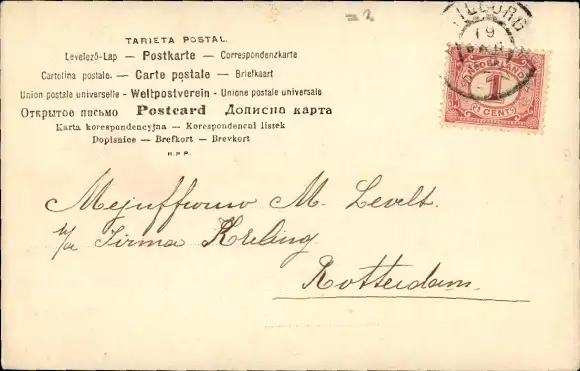 =2
TILBURG
19
TARJETA POSTAL.
Levelező-Lap — Postkarte — Correspondenzkarte
Cartolina postale. — Carte postale — Briefkaart
Union postale universelle - Weltpostverein - Unione postale universale
Открытое письмо Postcard Дописна карта
Karta korespondencyjna — Korespondencni listek
Dopisnice — Brefkort — Brevkort
H.P.P.
NEDERLAND
1
CENT
Mejuffrouw M. Levelt.
p/a Firma Kreling
Rotterdam.